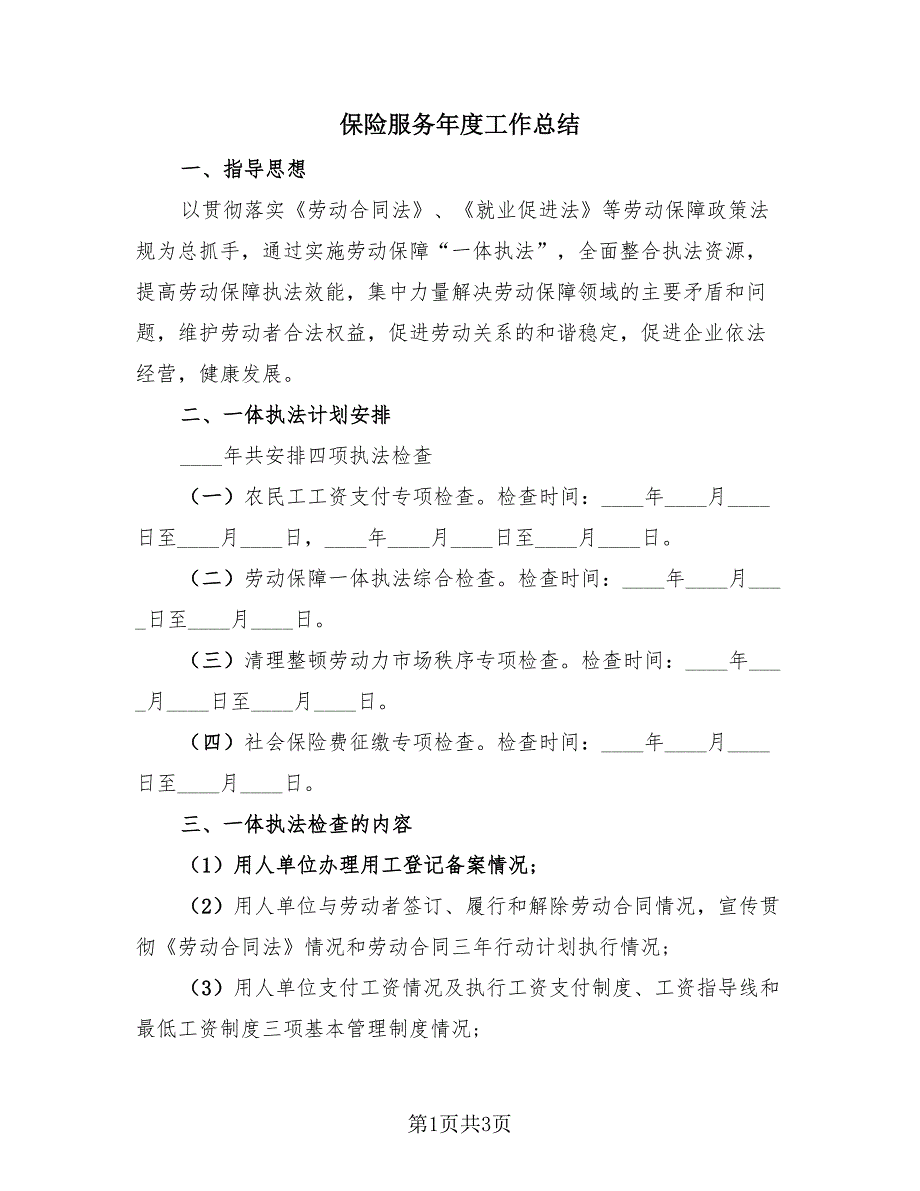 保险服务年度工作总结
一、指导思想
以贯彻落实《劳动合同法》、《就业促进法》等劳动保障政策法
规为总抓手，通过实施劳动保障“一体执法”，全面整合执法资源，
提高劳动保障执法效能，集中力量解决劳动保障领域的主要矛盾和问
题，维护劳动者合法权益，促进劳动关系的和谐稳定，促进企业依法
经营，健康发展。
二、一体执法计划安排
____年共安排四项执法检查
（一）农民工工资支付专项检查。检查时间：____年____月____
日至____月____日，____年____月____日至____月____日。
（二）劳动保障一体执法综合检查。检查时间：____年____月___
_日至____月____日。
（三）清理整顿劳动力市场秩序专项检查。检查时间：____年___
_月____日至____月____日。
（四）社会保险费征缴专项检查。检查时间：____年____月____
日至____月____日。
三、一体执法检查的内容
（1）用人单位办理用工登记备案情况；
（2）用人单位与劳动者签订、履行和解除劳动合同情况，宣传贯
彻《劳动合同法》情况和劳动合同三年行动计划执行情况；
（3）用人单位支付工资情况及执行工资支付制度、工资指导线和
最低工资制度三项基本管理制度情况；
第1页共3页